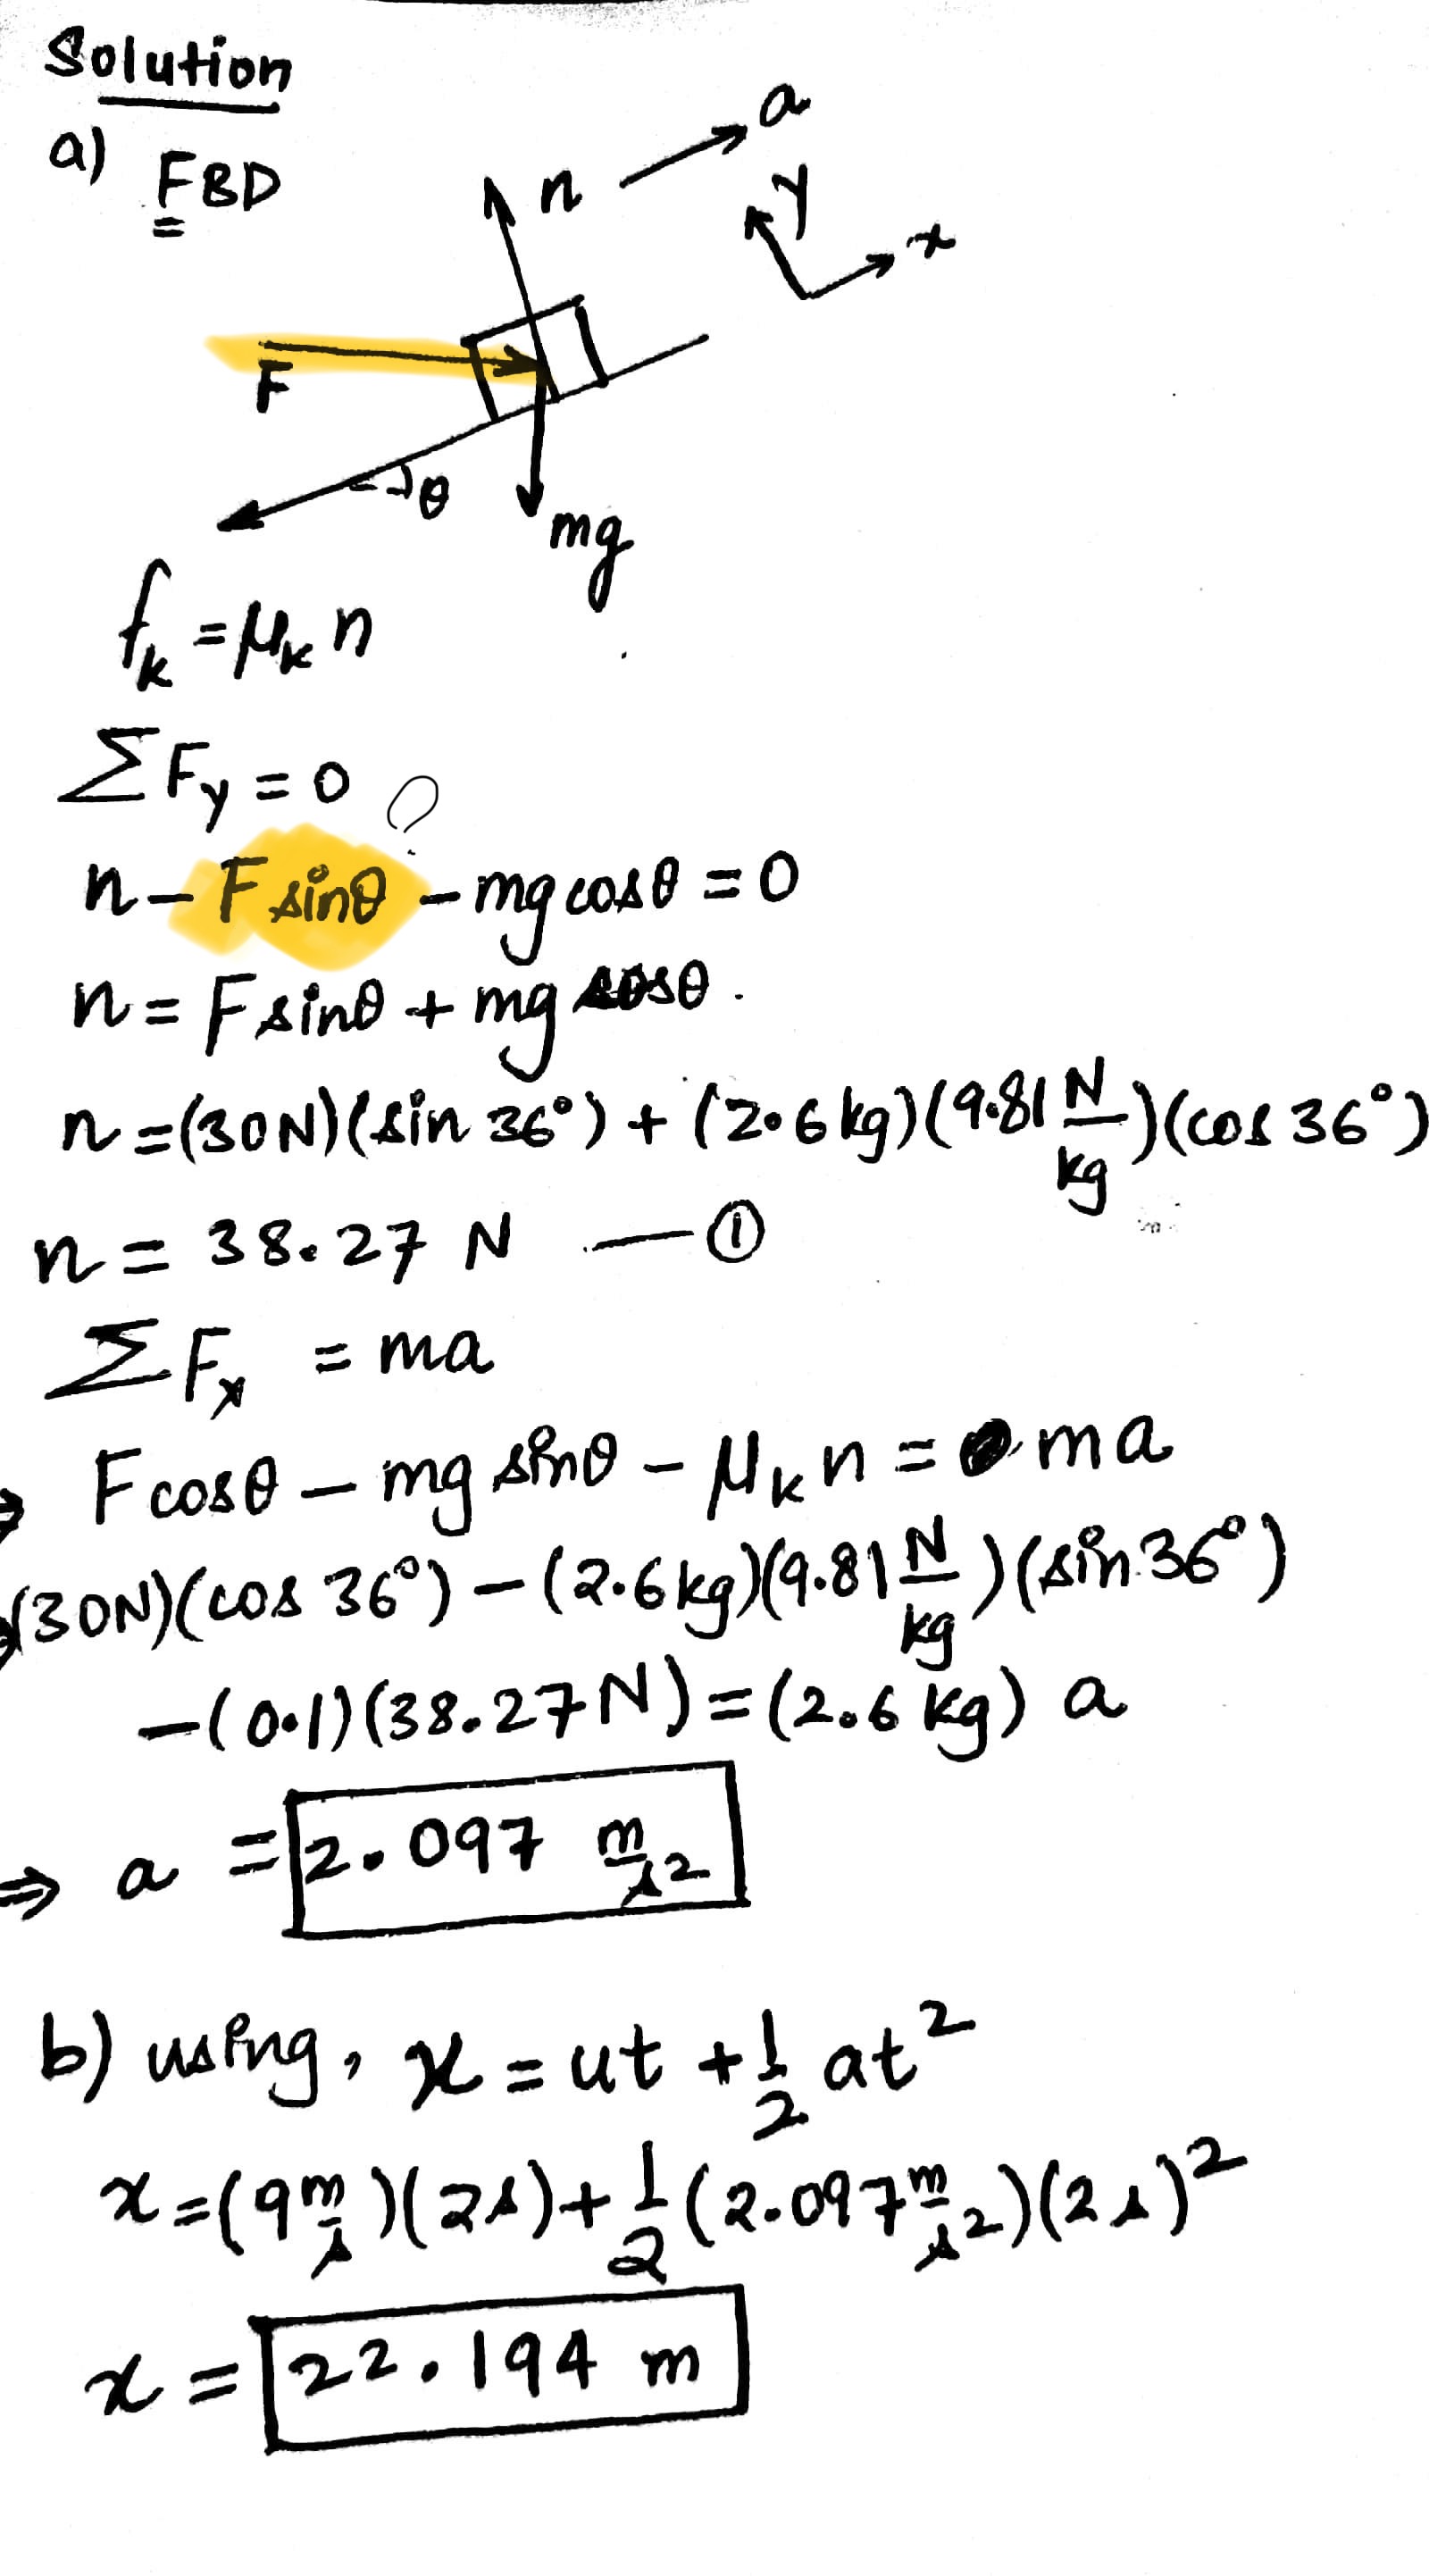 Solution
a) FBD
a
n
y
x
F
θ
mg
fₖ = μₖ n
ΣFy = 0 ?
n - F sinθ - mg cosθ = 0
n = F sinθ + mg cosθ.
n = (30N)(sin 36°) + (2.6 kg)(9.81 N/kg)(cos 36°)
n = 38.27 N — ①
ΣFx = ma
⇒ F cosθ - mg sinθ - μₖ n = ma
(30N)(cos 36°) - (2.6 kg)(9.81 N/kg)(sin 36°)
-(0.1)(38.27 N) = (2.6 kg) a
⇒ a = 2.097 m/s²
b) using, x = ut + 1/2 at²
x = (9 m/s)(2s) + 1/2 (2.097 m/s²)(2s)²
x = 22.194 m